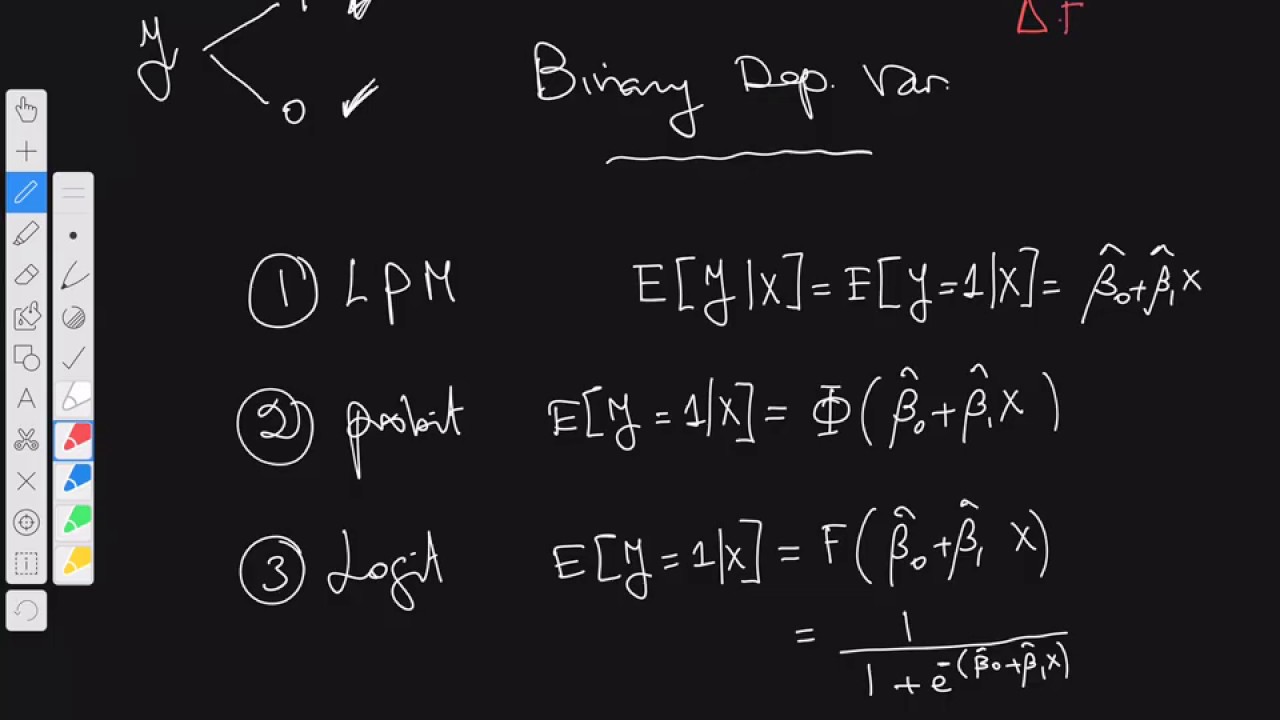 ΔF
y
Binary Dep. Var.
0
① LPM E[y|x] = E[y=1|x] = β̂₀+β̂₁x
② probit E[y=1|x] = Φ(β̂₀+β̂₁x)
③ Logit E[y=1|x] = F(β̂₀+β̂₁ x)
= 1
1+e^-(β̂₀+β̂₁x)
A